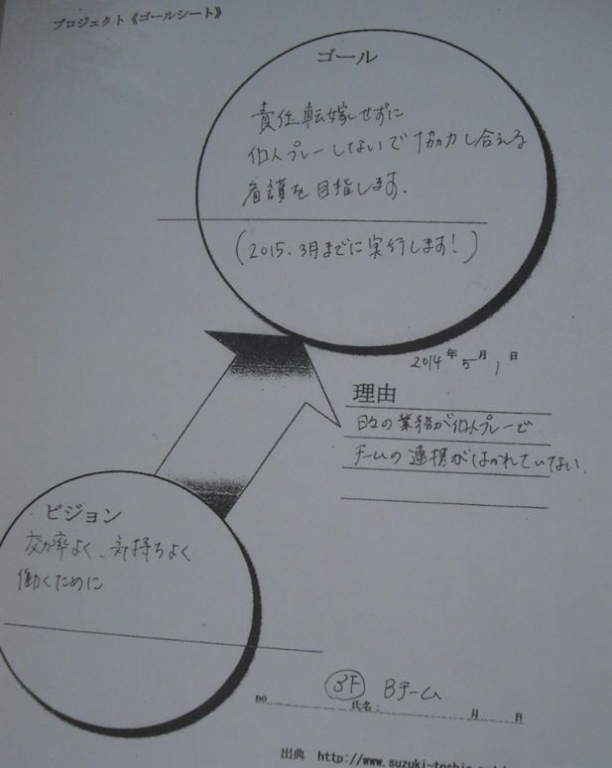 プロジェクト《ゴールシート》
ゴール
責任転嫁せずに
個人プレーしないで協力し合える
看護を目指します.
(2015.3月までに実行します!)
2014年5月1日
理由
日々の業務が個人プレーで
チームの連携がはかれていない.
ビジョン
効率よく、気持ちよく
働くために
3F Bチーム
no 氏名: 月 日
出典 http://www.suzuki-toshie